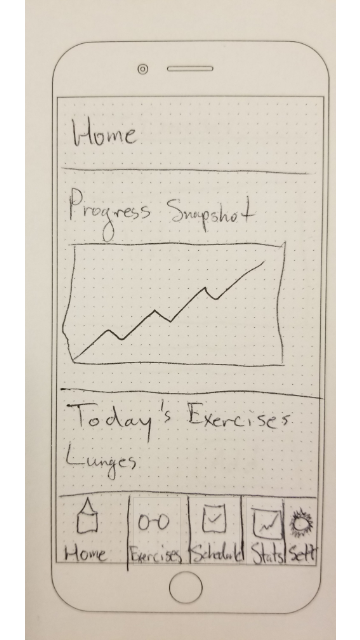 Home
Progress Snapshot
Today's Exercises
Lunges
Home Exercises Schedule Stats Sett